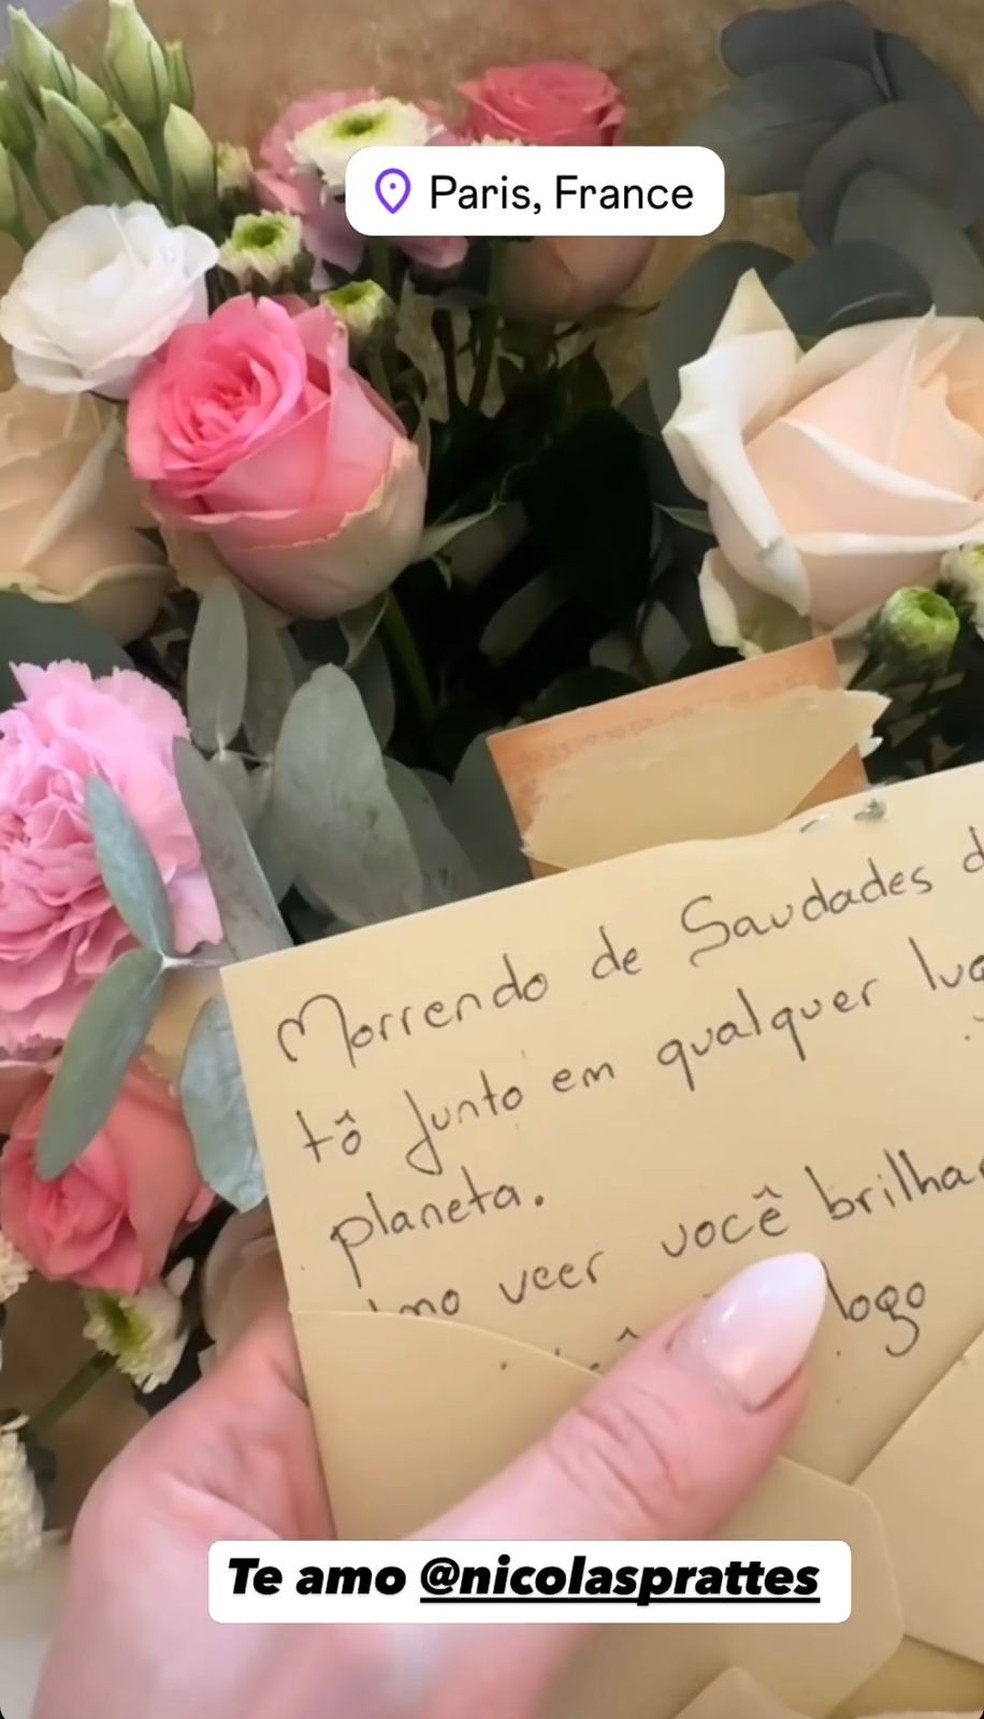 Paris, France
Morrendo de Saudades
tô junto em qualquer
planeta.
veer você
logo
Te amo @nicolasprattes